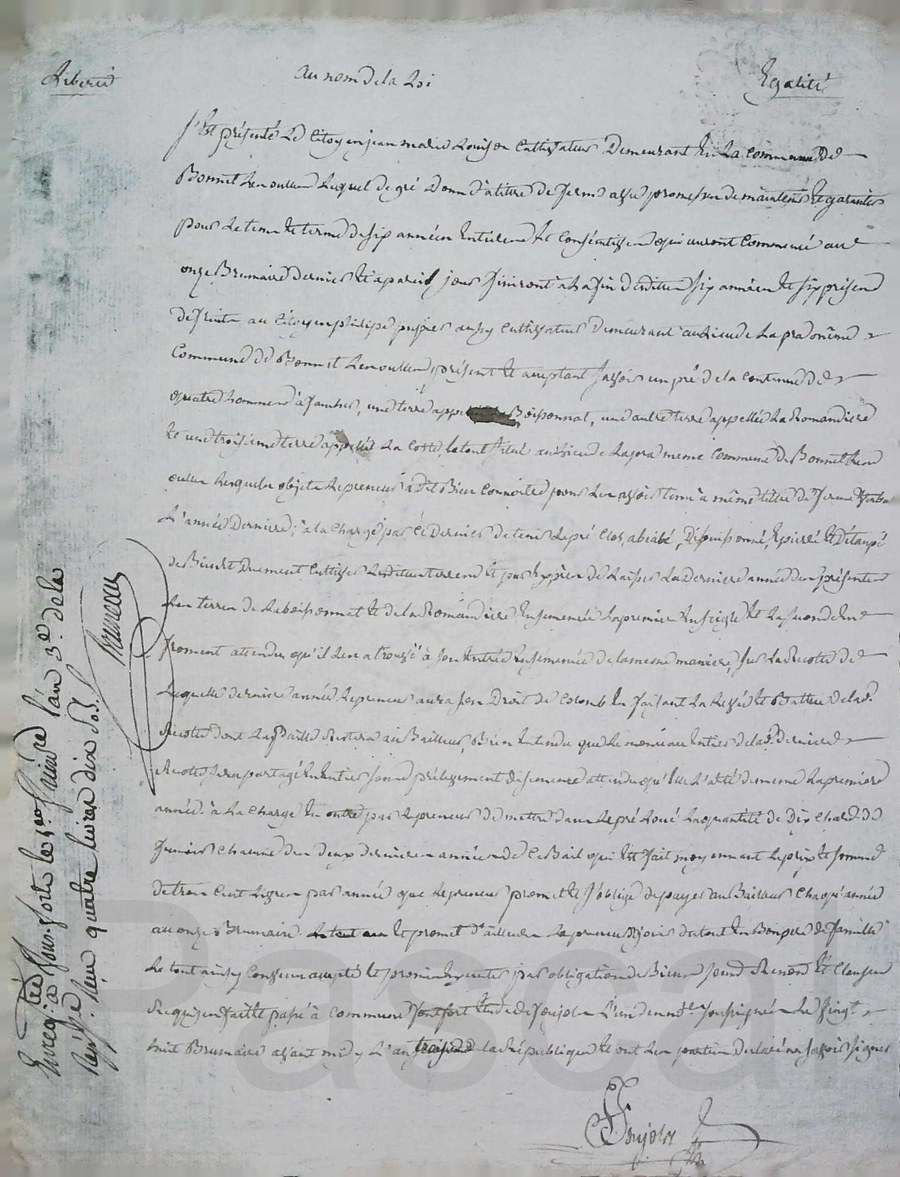 Liberté au nom de la Loi Egalité
S'est présenté Le Citoyen jean marie Louison Cultivateur Demeurant En La Commune De
Bonnet Lenoullen Lequel de gré Donne à titre de ferme avec promesse de maintenir Et garantir
pour Le tems Et terme de six années Entieres Et Consécutives qui auront Commencé au
onze Brumaire dernier Et à pareil jour finiront à La fin desdittes six années Et six prises
de fruits au Citoyen philipe aussy Cultivateur Demeurant au Lieu de Lapra même
Commune de Bonnet Lenoullen présent Et acceptant savoir un pré de la Contenue de
quatre hommes à faucher, une terre appellée Boissonnat, une autre terre appellée La Romandiere
Et une troisieme terre appellée La Coste, Le tout situé au Lieu de Lapra meme Commune de Bonnet Len
oullen Lesquels objets Le preneur a dit Bien Connoitre pour Les avoir tenu à même titre de ferme
L'année Derniere; à la Charge par Ce Dernier de tenir Le pré Clos, abéalé, Dépuissonné, Epierré Et Détaupé
de Bien Et Dument Cultiver Lesdittes terres Et pour de Laisser La derniere année des présentes
Les terres de Leboissonnat Et de la Romandiere Ensemencée La premiere En seigle Et La seconde En
froment attendu qu'il Les a trouvé à son Entrée Ensemencée de la meme maniere, sur La Recolte de
Laquelle derniere année Le preneur aura son Droit de Colomb En faisant La Levée Et Batture de la de
Recolte dont La paille Restera au Bailleur Bien Entendu que Le monceau Entier de la de Derniere
Recolte sera partagé En Entier sans prélevement de semence attendu qu'il L'a Eté de meme La premiere
année. à La Charge En outre par Le preneur de mettre dans Le pré Loué La quantité de dix Chars de
fumier Chacune des deux dernieres années de Ce Bail qui Est fait moyennant Le prix Et somme
de trois Cent Livres par année que Le preneur promet Et s'oblige de payer au Bailleur Chaqu'année
au onze Brumaire Et promet d'ailleurs Le preneur Jouir du tout En Bon pere de famille
Le tout ainsy Convenu accepté Et promis Executer par obligation de Biens soumd. Renond. Et Clauses
Requises fait Et passé à Commune Montfort Etude de Soujol L'un des nores. soussignés Le vingt
huit Brumaire avant midy L'an troisieme de la République Et ont Les parties declaré ne savoir signer
Soujolx
Enregé. à Mont-forte le 1er frimaire l'an 3e. de la
Répe. Reçu quatre livres dix sols.